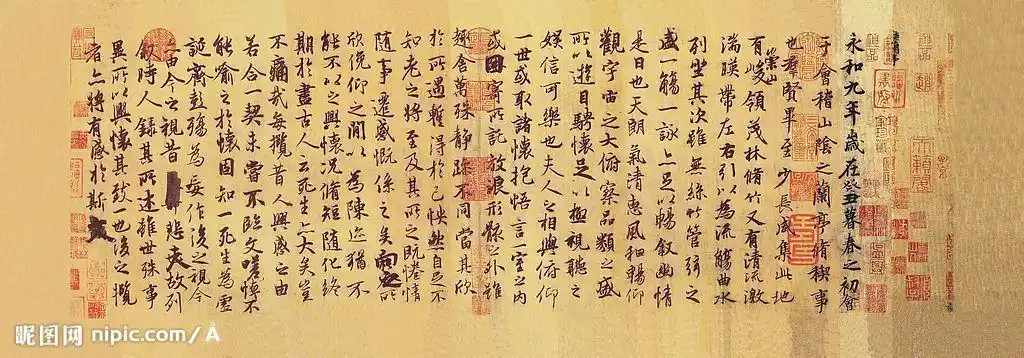 永和九年歲在癸丑暮春之初會
于會稽山陰之蘭亭脩稧事
也群賢畢至少長咸集此地
有崇山峻領茂林脩竹又有清流激
湍暎帶左右引以為流觴曲水
列坐其次雖無絲竹管弦之
盛一觴一詠亦足以暢敘幽情
是日也天朗氣清惠風和暢仰
觀宇宙之大俯察品類之盛
所以遊目騁懷足以極視聽之
娛信可樂也夫人之相與俯仰
一世或取諸懷抱悟言一室之內
或因寄所託放浪形骸之外雖
趣舍萬殊靜躁不同當其欣
於所遇蹔得於己怏然自足不
知老之將至及其所之既惓情
隨事遷感慨係之矣向之所
欣俛仰之閒以為陳迹猶不
能不以之興懷況脩短隨化終
期於盡古人云死生亦大矣豈
不痛哉每攬昔人興感之由
若合一契未嘗不臨文嗟悼不
能喻之於懷固知一死生為虛
誕齊彭殤為妄作後之視今
亦由今之視昔悲夫故列
敘時人錄其所述雖世殊事
異所以興懷其致一也後之攬
者亦將有感於斯文
昵图网 nipic.com/Å